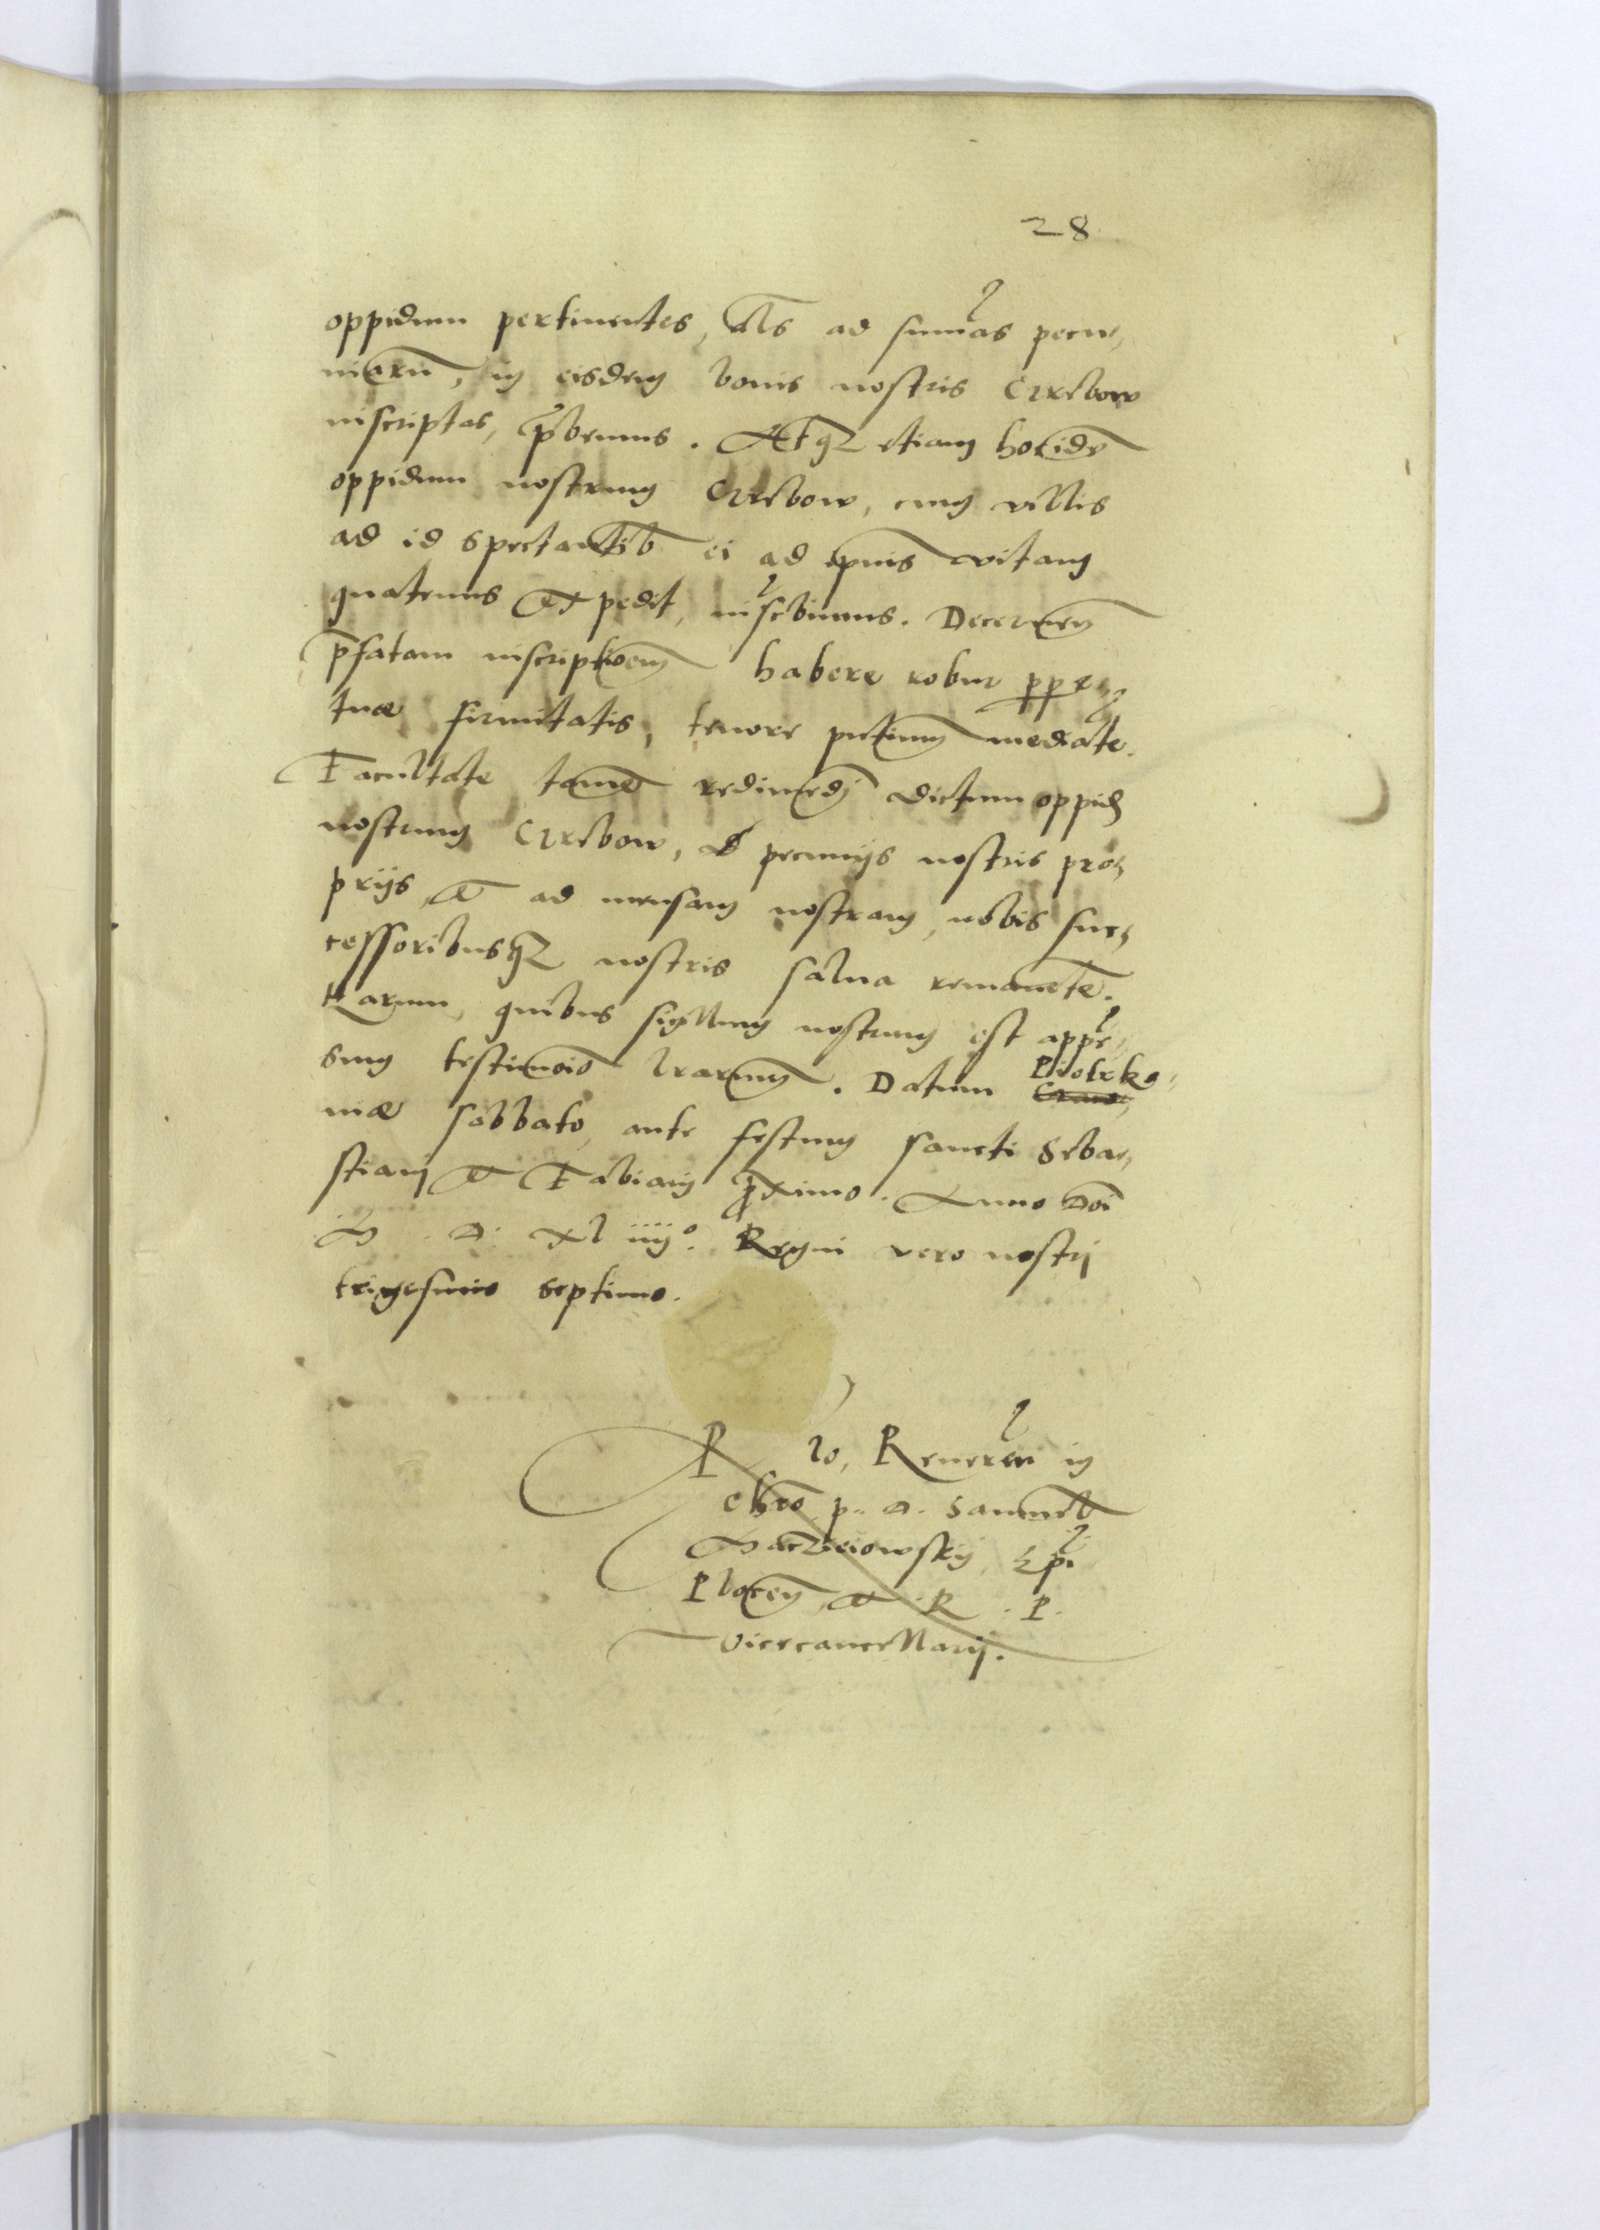 28
oppidum pertinentes, als ad summas pecu,
niarū, in eisdem bonis nostris Czrebow
inscriptas, p̄bemus. Atq3 etiam hocidē
oppidum nostrum Czrebow, cum villis
ad id spectantib ei ad ipius vitam
quatenus expedit, inscbimus. Decernen
p̄fatam inscriptioem habere robur ppe,
tuæ firmitatis, tenore pntium mediate.
Facultate tamē redimēdj dictum oppid
nostrum Czrebow, de pecunijs nostris pro,
prijs, et ad mensam nostram, nobis suc,
cessoribusq3 nostris salua remanēte.
Harum, quibus sigillum nostrum est appē,
sum testimoio lrarum. Datum Piotrko,
niæ sabbato, ante festum sancti Sebas,
tianj et Fabianj proximo. Anno Doi
M. D. xl iiij°. Regni vero nostrj
trigesimo septimo.
R lo, Reueren in
Chro p. D. Samuel
Maczieiowskij, Epi
Plocen, et R. P.
Vicecancellarij.